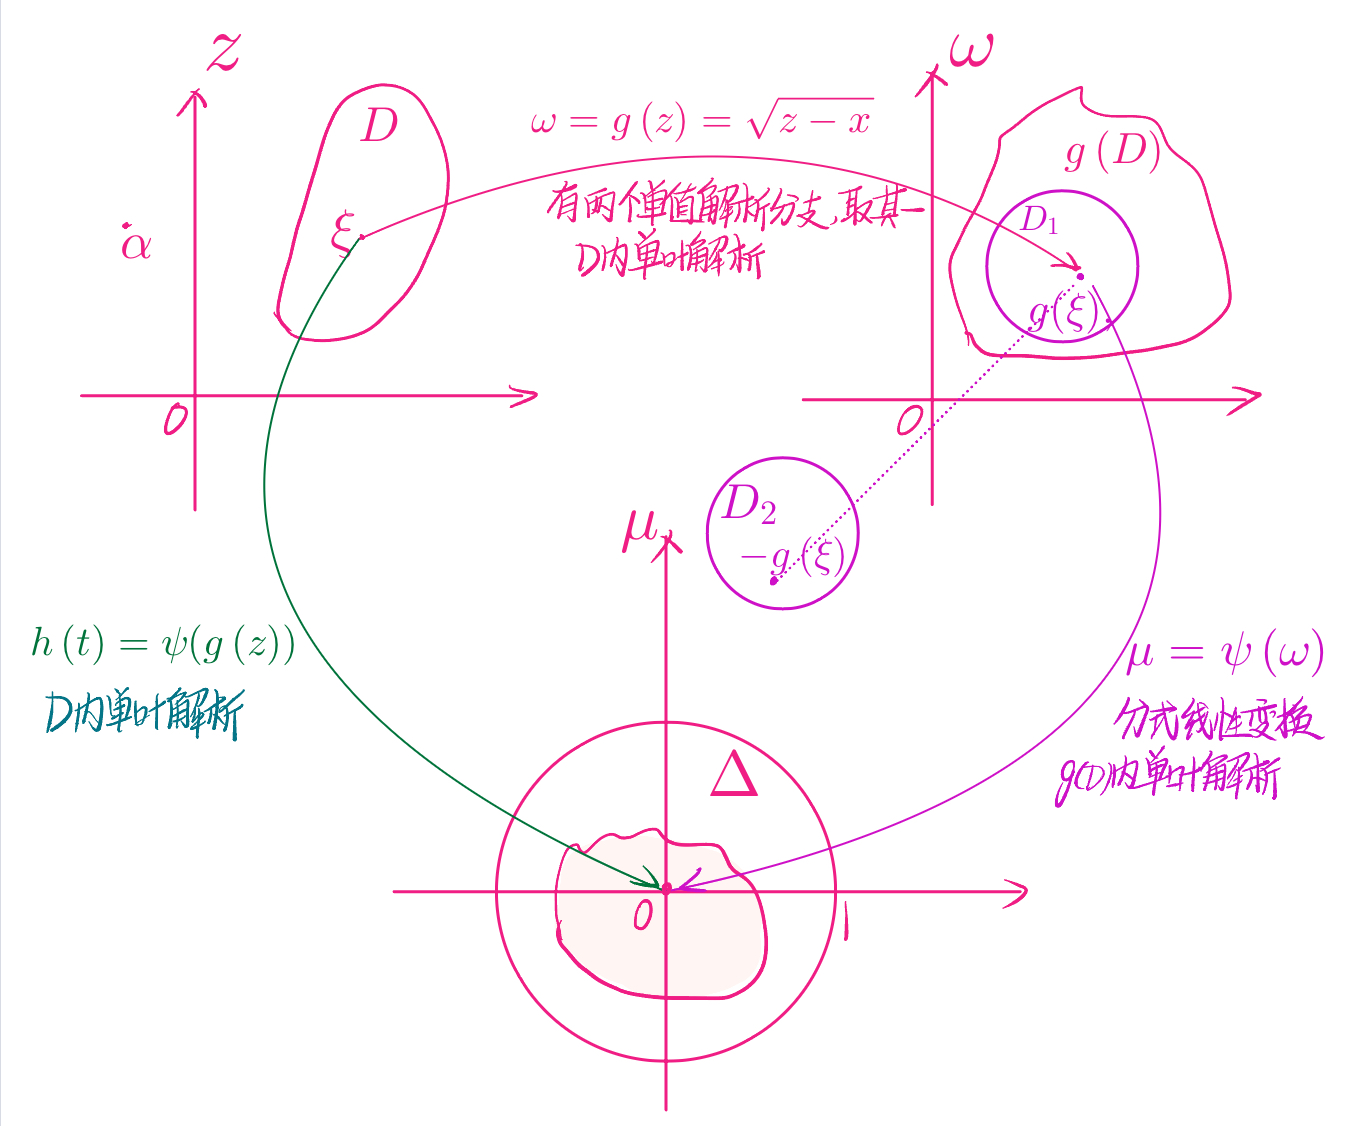 z
D
ξ
α
0
ω = g (z) = √z − x
有两个单值解析分支,取其一
D内单叶解析
ω
g (D)
D₁
g(ξ)
0
D₂
−g (ξ)
μ
h (t) = ψ(g (z))
D内单叶解析
μ = ψ (ω)
分式线性变换
g(D)内单叶解析
Δ
0
1